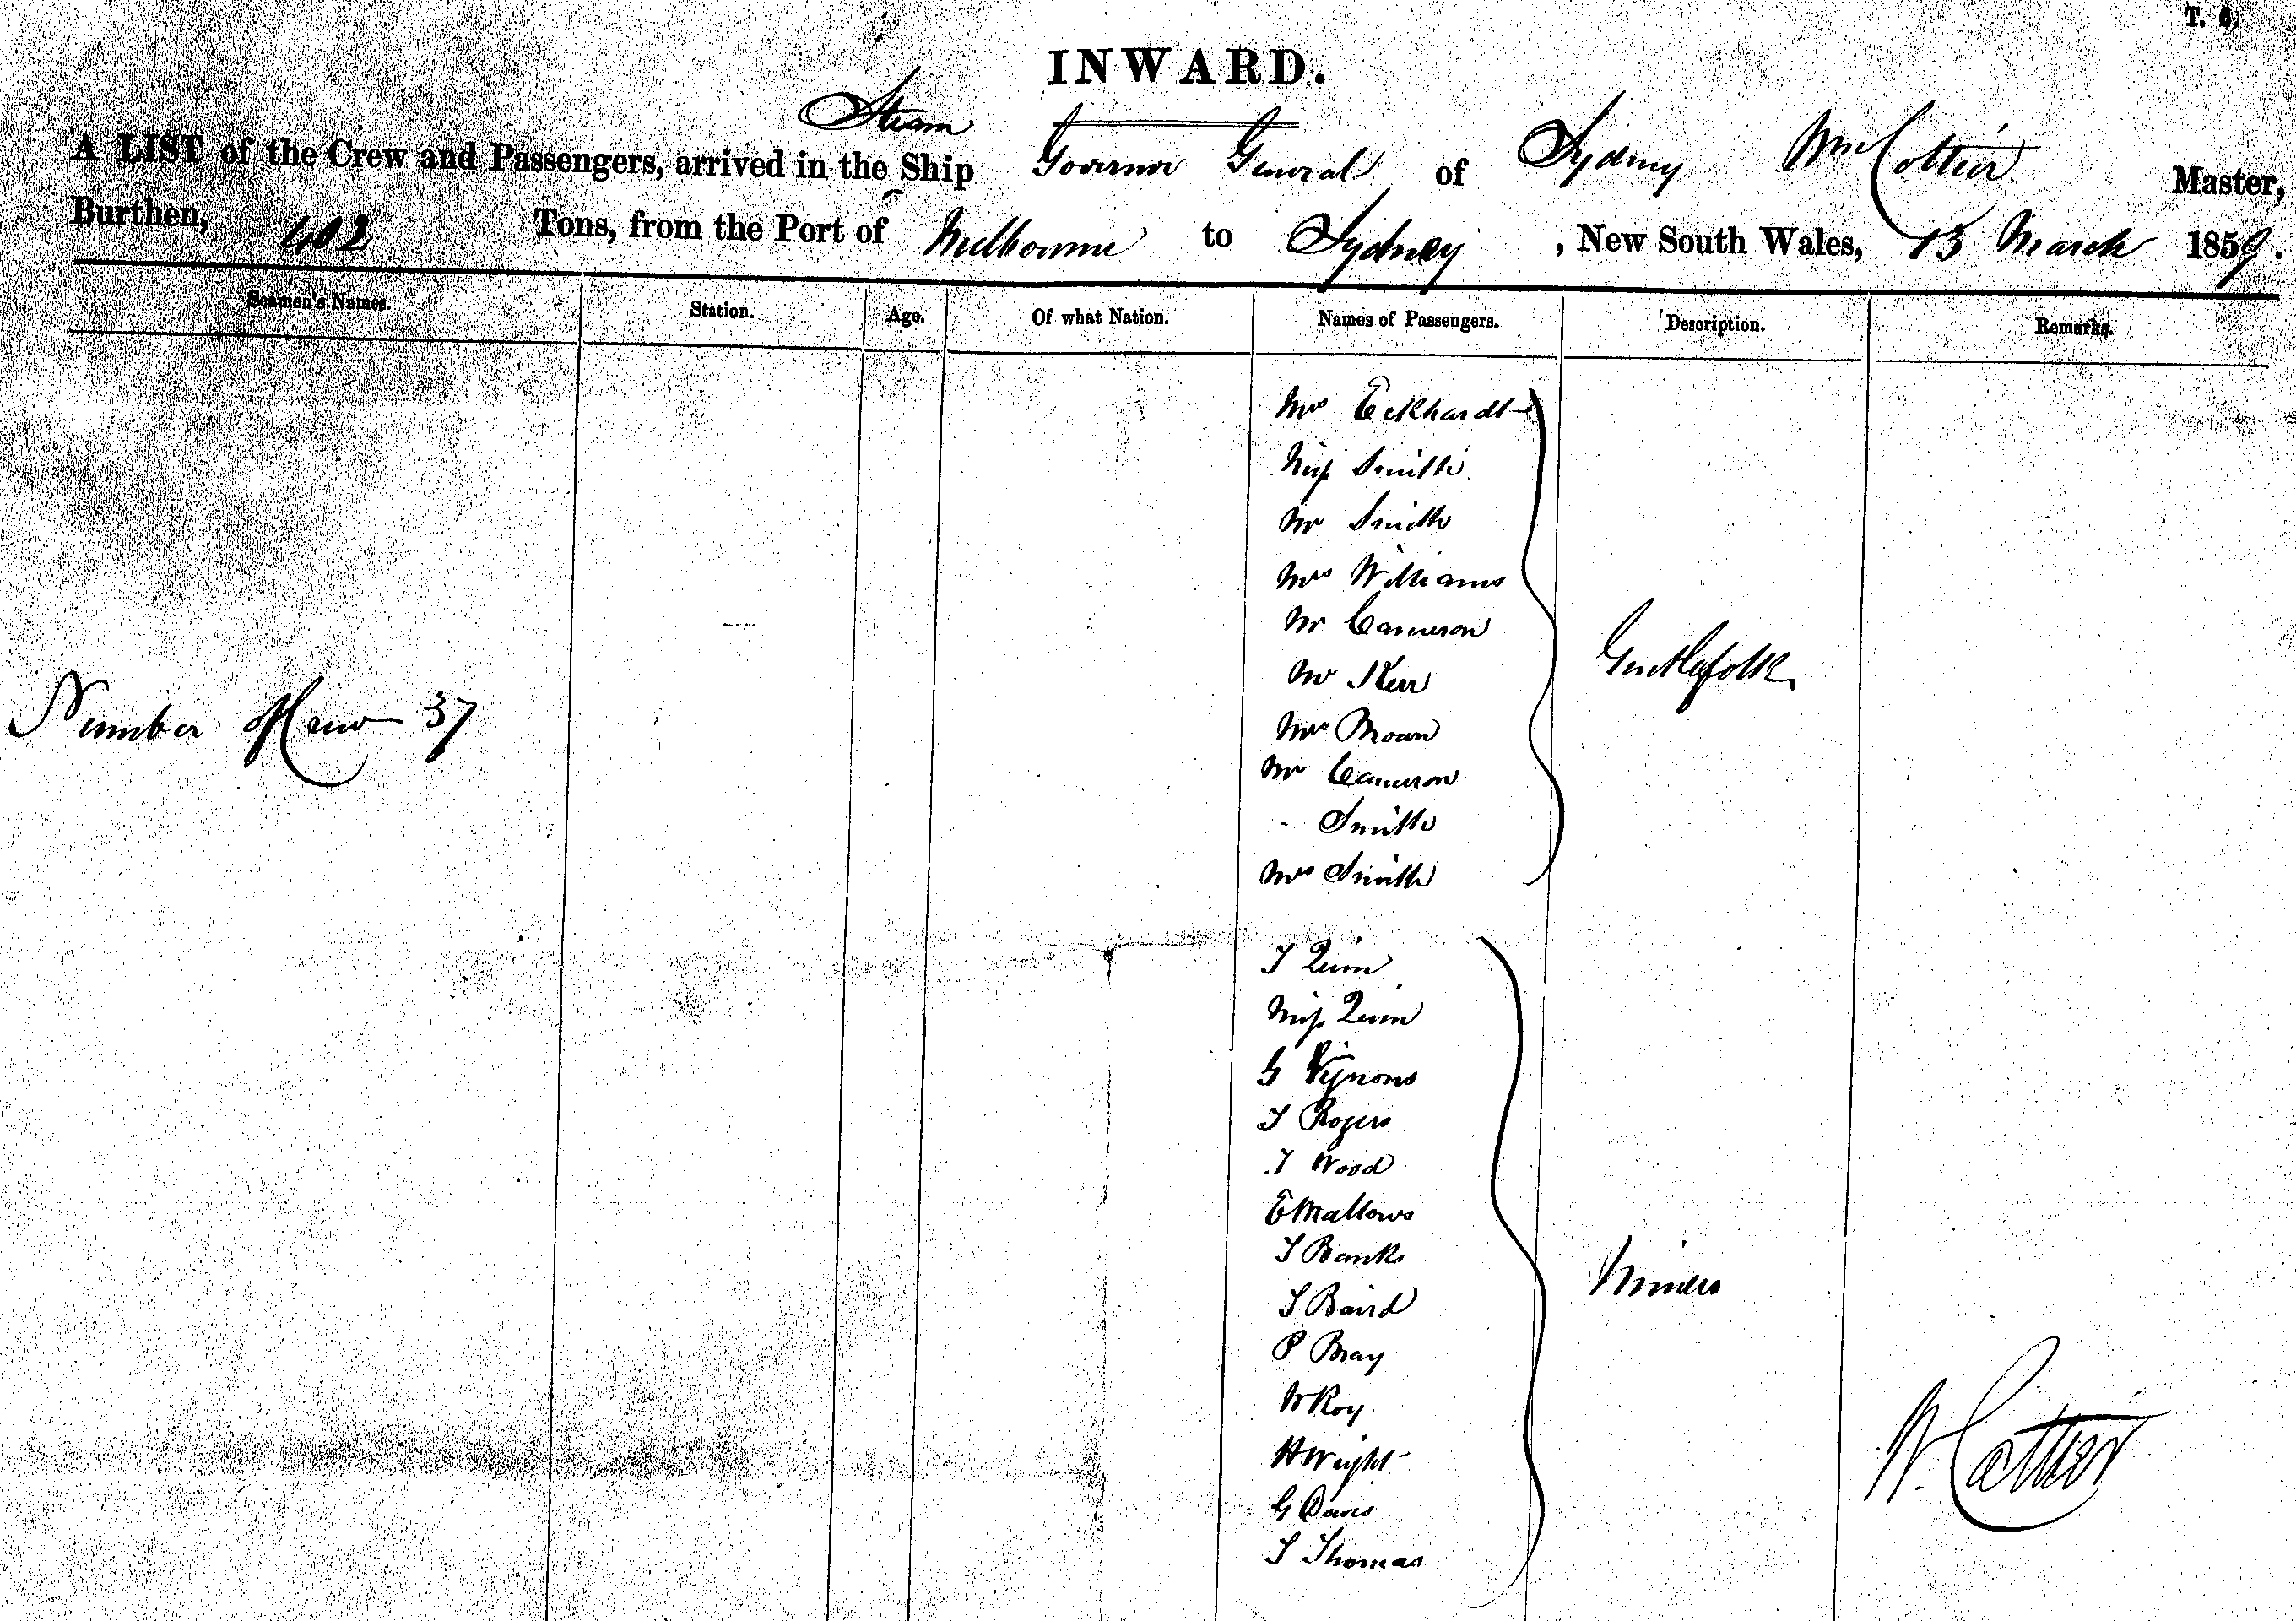 T. 6.
INWARD.
Steam
A LIST of the Crew and Passengers, arrived in the Ship Governor General of Sydney Wm Cottier Master,
Burthen, 402 Tons, from the Port of Melbourne to Sydney , New South Wales, 13 March 1859.
Seamen's Names. Station. Age. Of what Nation. Names of Passengers. Description. Remarks.
Mrs Eckhardt
Miss Smith
Mr Smith
Mrs Williams
Mr Cameron
Mr Kerr
Gentlefolk
Number of Crew 37
Mrs Moan
Mr Cameron
- Smith
Mrs Smith
J Quinn
Miss Quinn
G
J Rogers
J Wood
E Mallows
J Banks
J Baird
Miners
P Bray
W Roy
H Wright
W. Cottier
G Davis
J Thomas